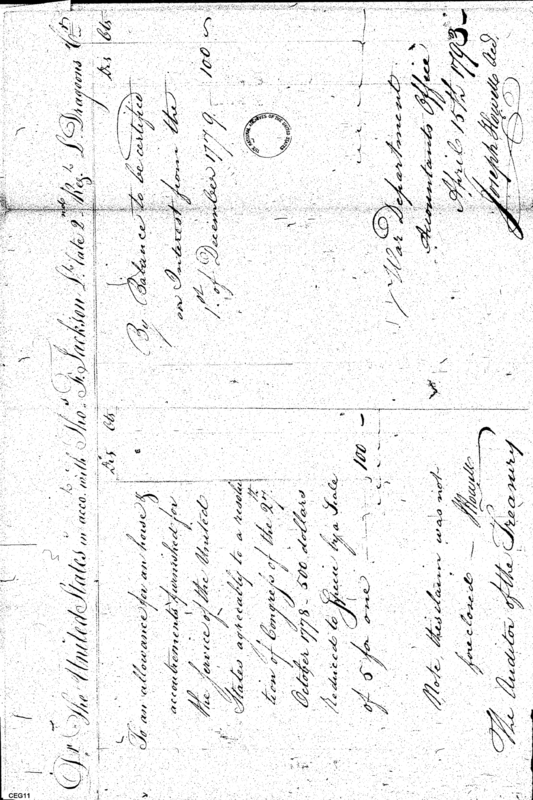 Dr. The United States in acco. with Thos. F. Jackson Lt. late 2nd Regt. L Dragoons Cr.
Drs Cts
To an allowance for an horse &
accoutrements furnished for
the service of the United
States agreeably to a resolu
tion of Congress of the 2nd
October 1778 500 dollars
reduced to Specie by a Scale
of 5 for one 100 —
Note, this claim was not
foreclosed — JHowell
The Auditor of the Treasury
Drs Cts
By Balance to be certified
on Interest from the
1st of December 1779 100 —
War Department
Accountants Office
April 15th 1793 —
Joseph Howell Acct.
CEG11